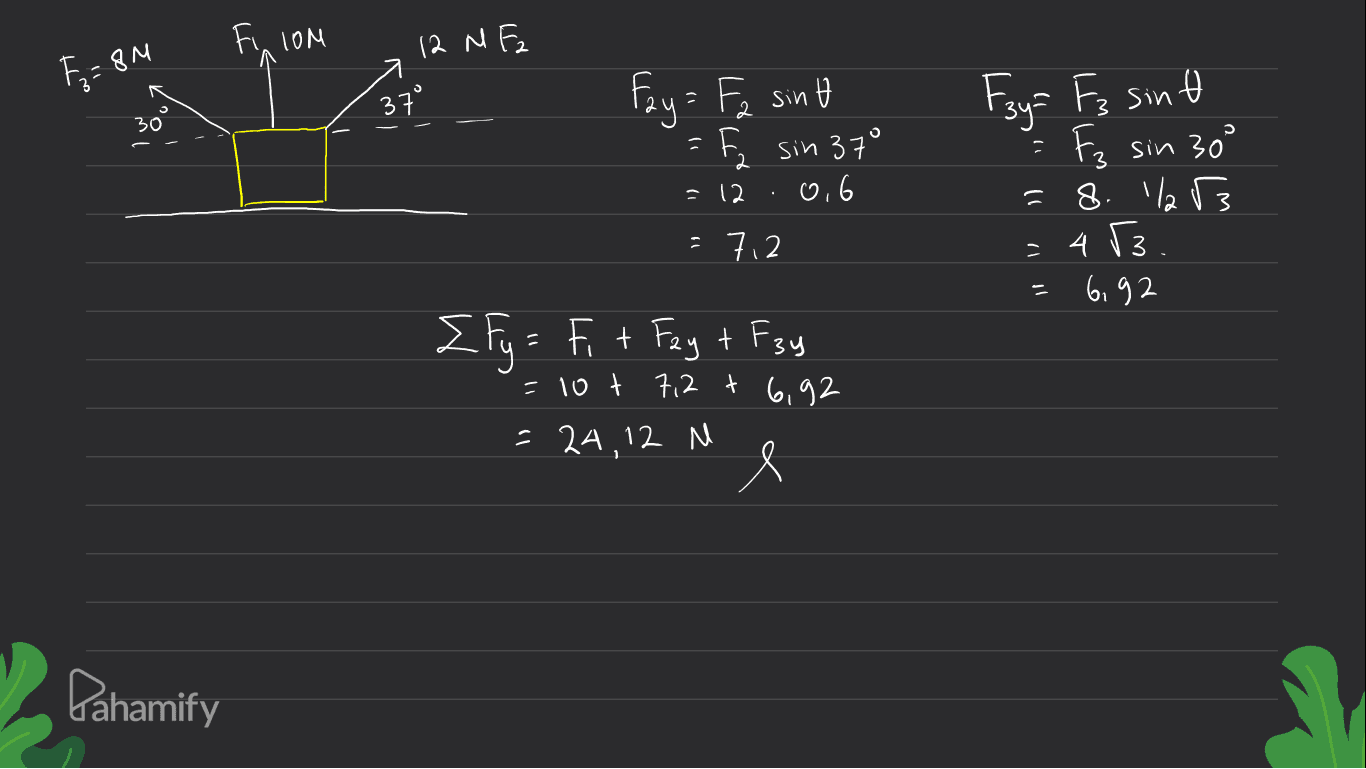 F₃ = 8 N
F₁ 10 N
12 N F₂
30°
37°
F₂y = F₂ sin θ
= F₂ sin 37°
= 12 . 0,6
= 7,2
F₃y = F₃ sin θ
= F₃ sin 30°
= 8. 1/2 √3
= 4 √3.
= 6,92
ΣFy = F₁ + F₂y + F₃y
= 10 + 7,2 + 6,92
= 24,12 N
Pahamify